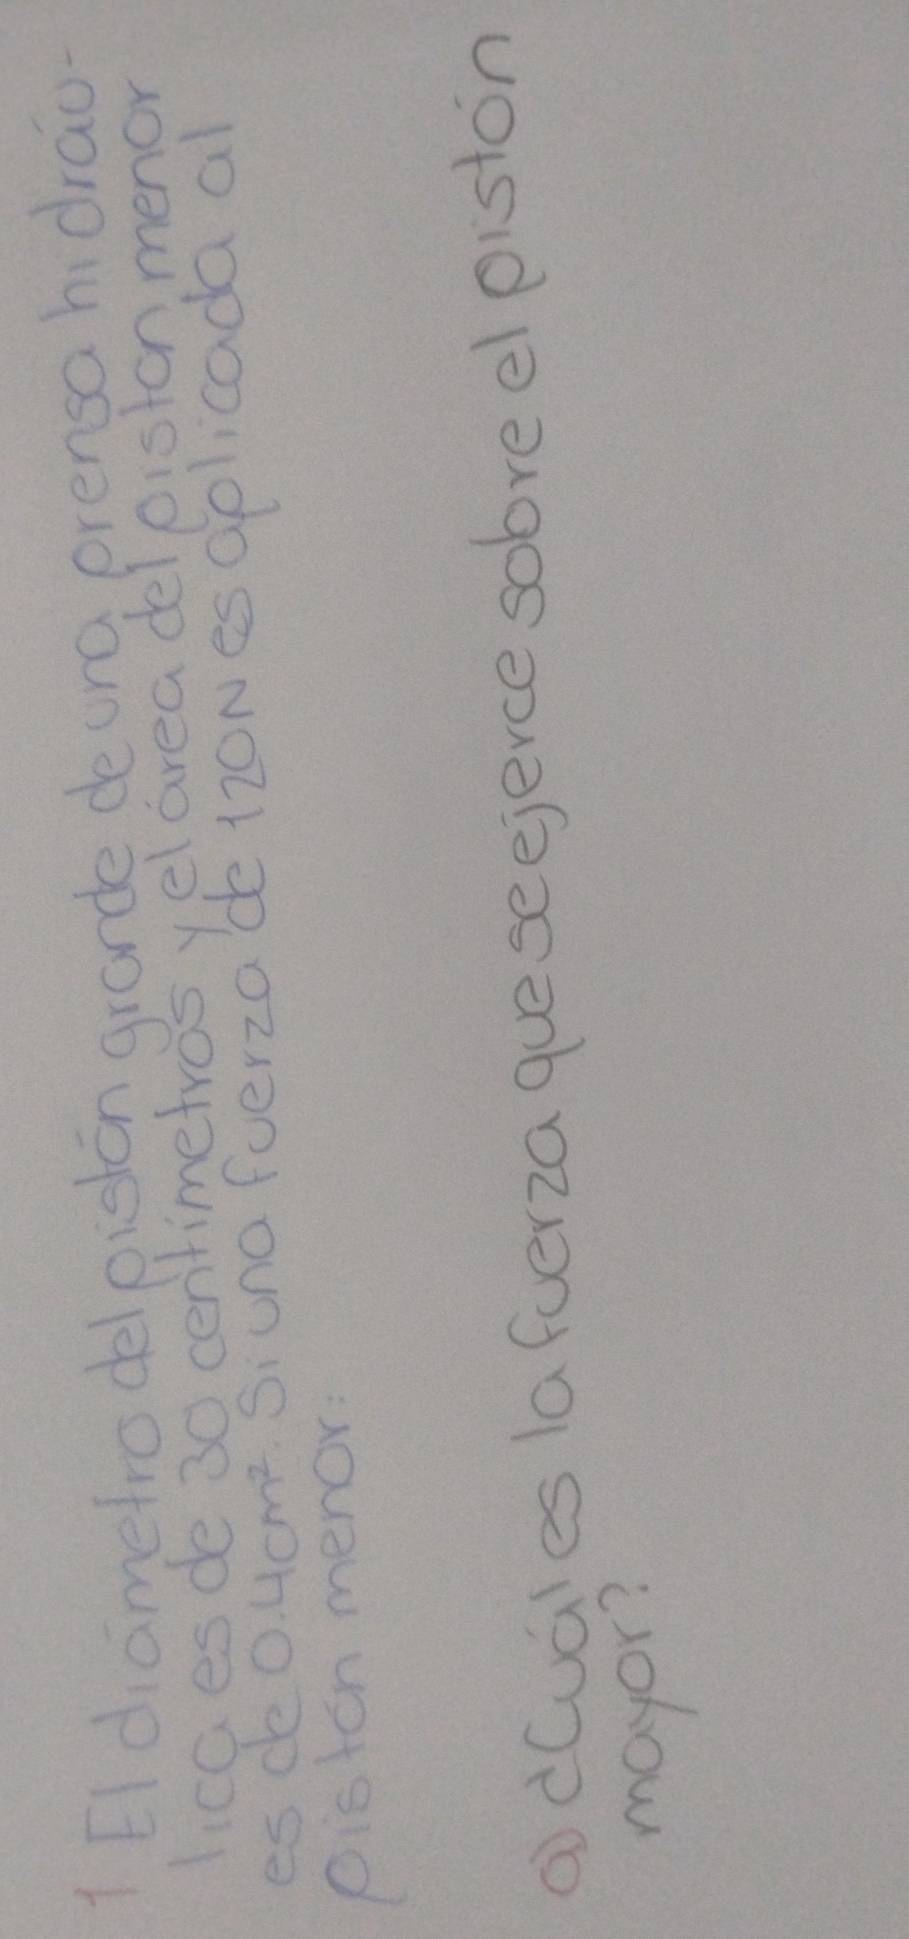 1 El diámetro del pistón grande de una prensa hidráu-
lica es de 30 centimetros y el área del piston menor
es de 0.4cm². Si una fuerza de 120N es aplicada al
pistón menor:
a) ¿Cuál es la fuerza que se ejerce sobre el pistón
mayor?